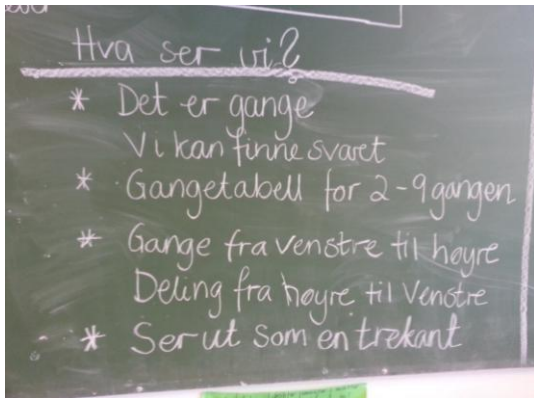 Hva ser vi?
* Det er gange
Vi kan finne svaret
* Gangetabell for 2-9gangen
* Gange fra venstre til høyre
Deling fra høyre til Venstre
* Ser ut som en trekant